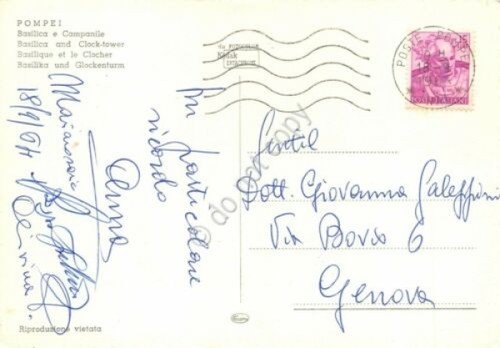 POMPEI
Basilica e Campanile
Basilica and Clock-tower
Basilique et le Clocher
Basilika und Glockenturm
POSTE
Un particolare
ricordo
Anna
18/9/64
Gentil
Dott. Giovanna Galeffini
Via Bovio 6
Genova
Riproduzione vietata
do not copy